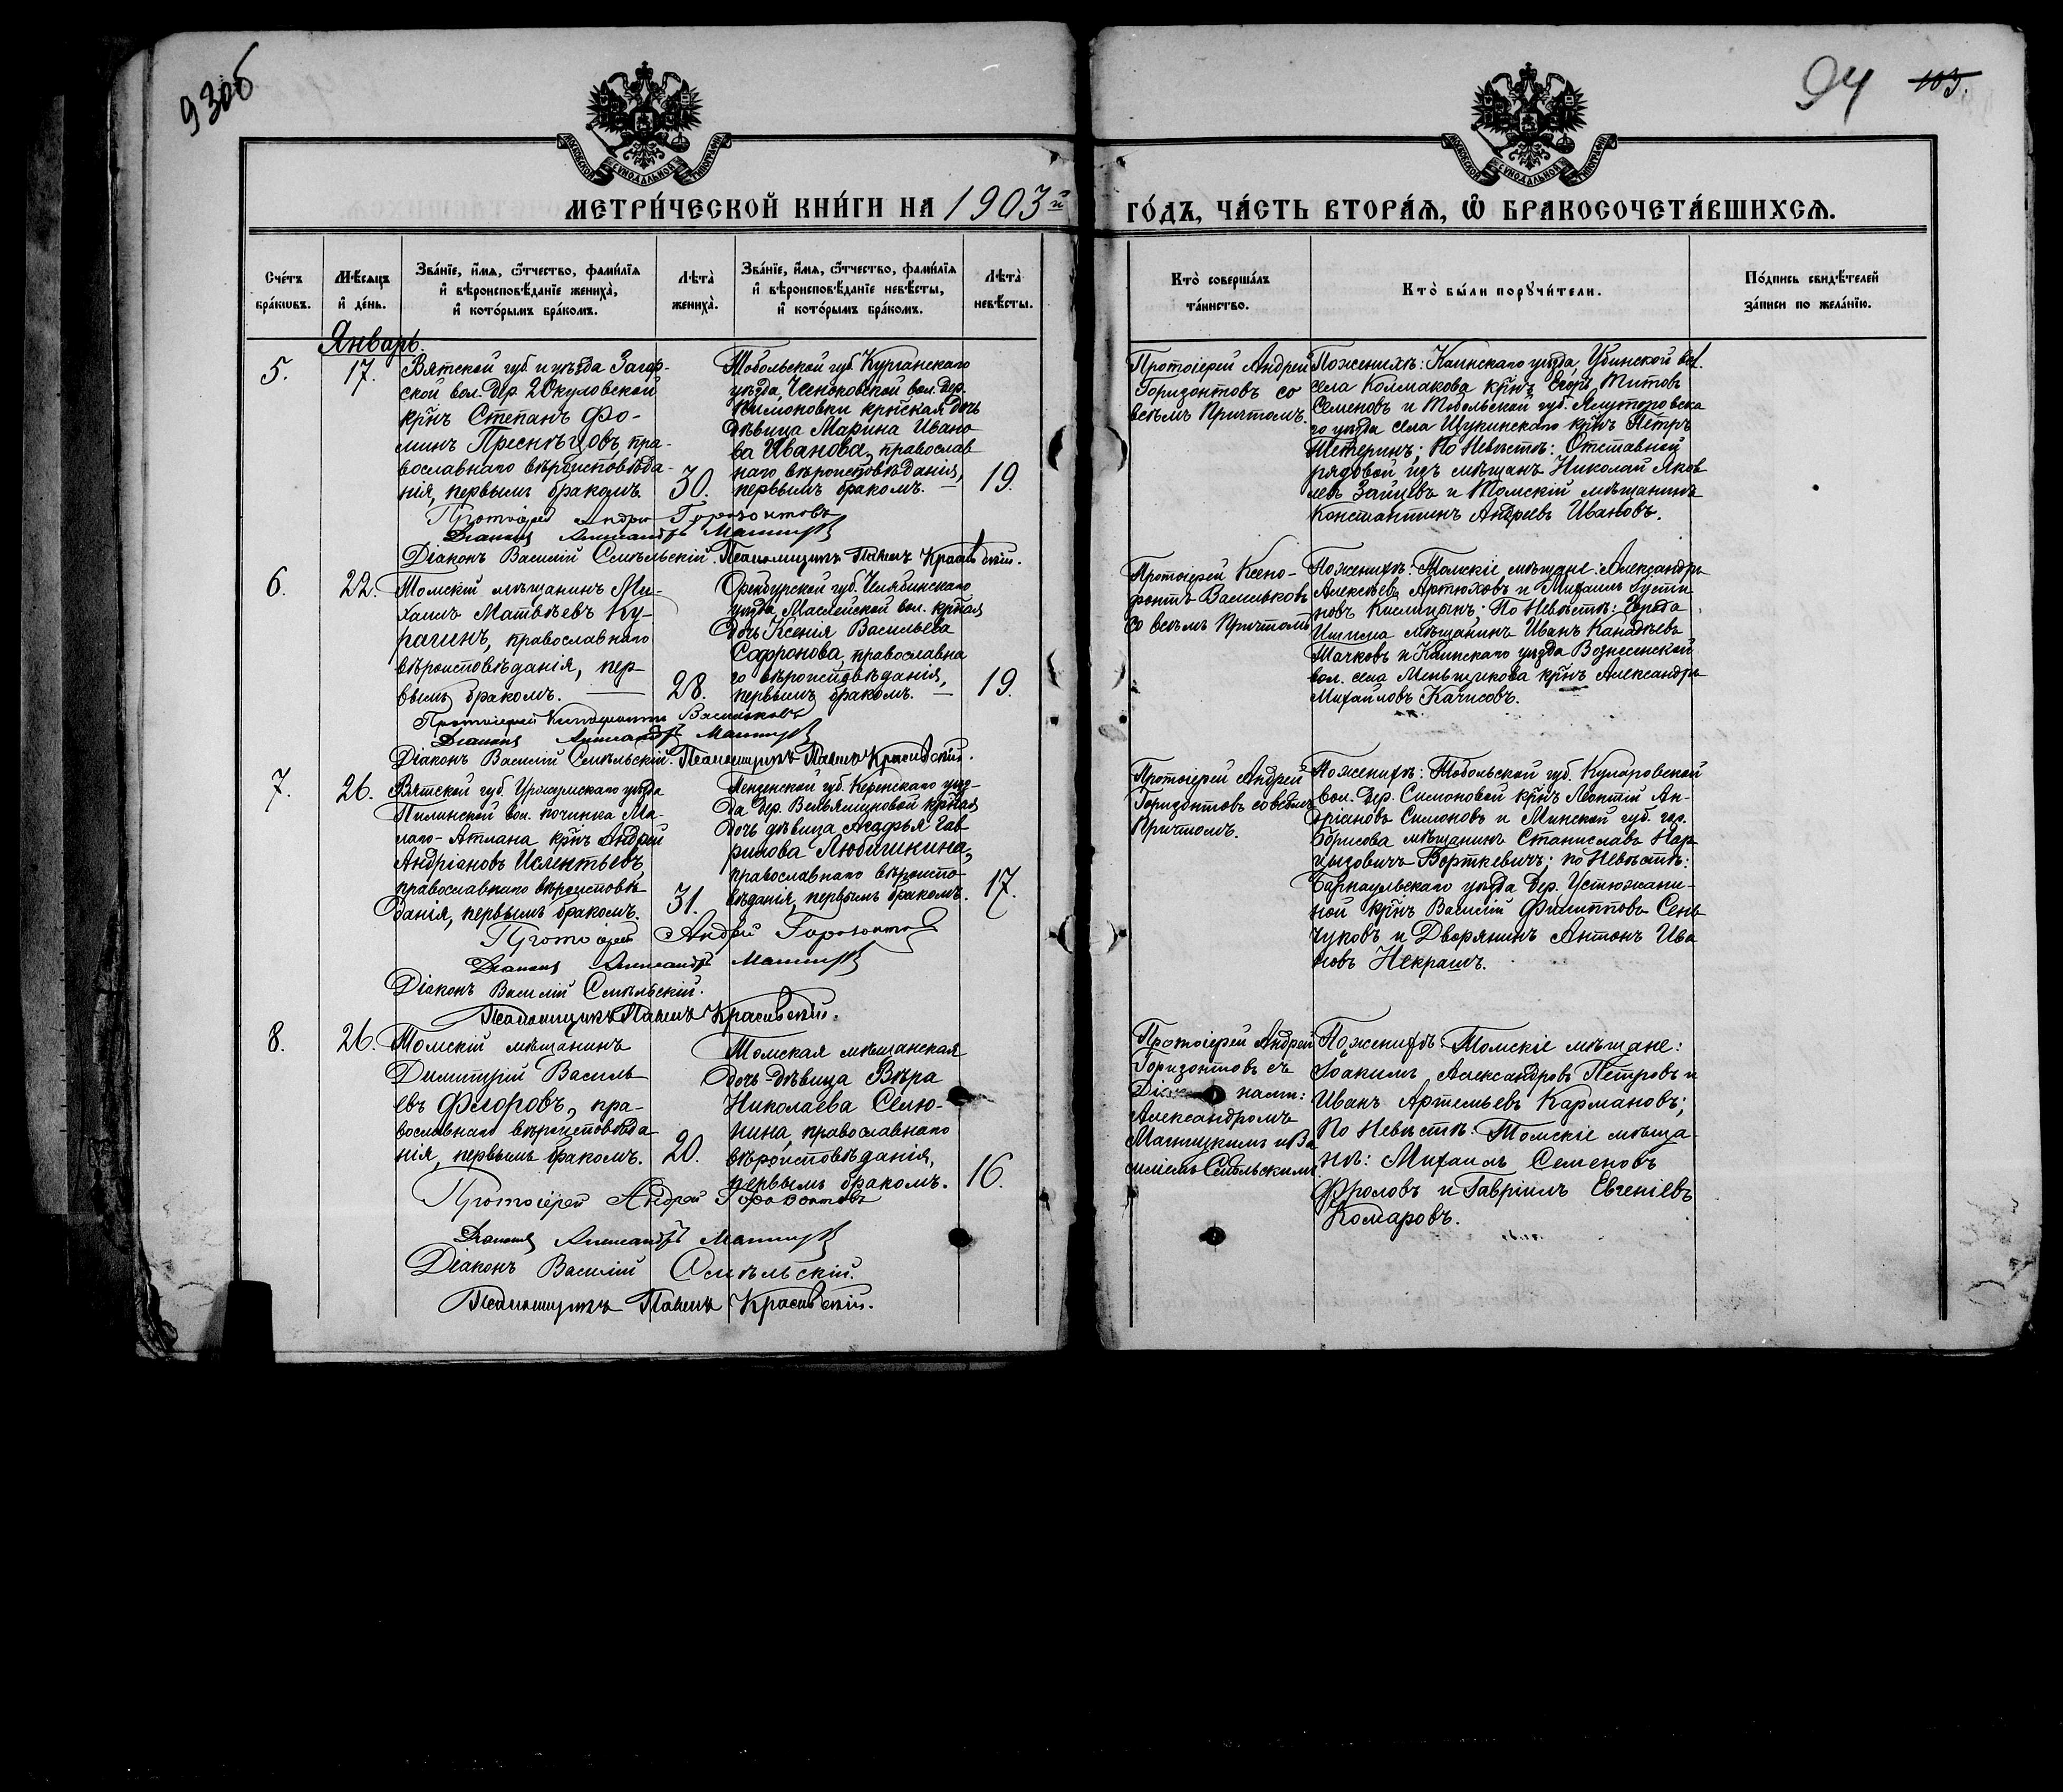 93об
94 103.
МОСКОВСКОЙ СѴНОДАЛЬНОЙ ТИПОГРАФІИ
МОСКОВСКОЙ СѴНОДАЛЬНОЙ ТИПОГРАФІИ
МЕТРИ́ЧЕСКОЙ КНИ́ГИ НА 1903й
ГО́ДЪ, ЧА́СТЬ ВТОРА́Ѧ, Ѽ БРАКОСОЧЕТА́ВШИХСѦ.
Сче́тъ
бра́кѡвъ.
Мѣ́сѧцъ
и҆ де́нь.
Зва́нїе, и҆́мѧ, ѻ҆́тчество, фами́лїѧ
и҆ вѣроисповѣ́данїе жениха̀,
и҆ кото́рымъ бра́комъ.
Лѣта̀
жениха̀.
Зва́нїе, и҆́мѧ, ѻ҆́тчество, фами́лїѧ
и҆ вѣроисповѣ́данїе невѣ́сты,
и҆ кото́рымъ бра́комъ.
Лѣта̀
невѣ́сты.
Кто̀ соверша́лъ
та́инство.
Кто̀ бы́ли порꙋчи́тели.
По́дпись свидѣ́телей
за́писи по жела́нїю.
Январь.
5.
17.
Вятской губ. и уѣзда Загар-
ской вол. Дер. 2 Окуловской
крнъ Степанъ Фо-
минъ Преснецовъ, пра-
вославнаго вѣроисповѣда-
нія, первымъ бракомъ.
30.
Тобольской губ. Курганскаго
уѣзда, вол. Дер.
крнская дочь
дѣвица Марина Ивано
ва Иванова, православ
наго вѣроисповѣданія,
первымъ бракомъ. —
19.
Протоіерей Андрей
Горизонтовъ со
всѣмъ Причтомъ.
Поженихѣ: Каинскаго уѣзда, Убинской вол.
села Колмакова крнъ Егоръ Титовъ
Семеновъ и Тобольской губ. Ялуторовска
го уѣзда села Щукинскаго крнъ Петръ
Тетеринъ; По Невѣстѣ: Отставной
рядовой изъ мѣщанъ Николай Яков
левъ Зайцевъ и Томскій мѣщанинъ
Константинъ Андреевъ Ивановъ.
Протоіерей Андрей Горизонтовъ
Діаконъ Александръ
Діаконъ Василій Смѣльскій. Псаломщикъ Павелъ Красивскій.
6.
22.
Томскій мѣщанинъ Ми-
хаилъ Матвѣевъ Ку-
рагинъ, православнаго
вѣроисповѣданія, пер
вымъ бракомъ. —
28.
Оренбургской губ. Челябинскаго
уѣзда, Маслейской вол. крная
дочь Ксенія Васильева
Софронова, православна
го вѣроисповѣданія,
первымъ бракомъ. —
19.
Протоіерей Ксено-
фонтъ Васильковъ
со всѣмъ Причтомъ
Поженихѣ: Томскіе мѣщане: Александръ
Алексѣевъ Артюховъ и Михаилъ Густи-
новъ Кислицынъ; По Невѣстѣ: Города
Ишима мѣщанинъ Иванъ
Мачковъ и Каинскаго уѣзда Вознесенской
вол. села Меньщикова крнъ Александръ
Михайловъ Качисовъ.
Протоіерей Ксенофонтъ Васильковъ
Діаконъ Александръ
Діаконъ Василій Смѣльскій. Псаломщикъ Павелъ Красивскій.
7.
26.
Вятской губ. Уржумскаго уѣзда
Пилинской вол. починка Ма-
лаго-Атлана крнъ Андрей
Андріановъ Ислентьевъ,
православнаго вѣроисповѣ
данія, первымъ бракомъ.
31.
Пензенской губ. Керенскаго уѣз-
да Дер. Вельяминовой крная
дочь дѣвица Агафья Гав-
рилова Любишкина,
православнаго вѣроиспо-
вѣданія, первымъ бракомъ.
17.
Протоіерей Андрей
Горизонтовъ со всѣмъ
Причтомъ.
Поженихѣ: Тобольской губ. Куларовской
вол. Дер. Симоновой крнъ Леонтій Ан-
дріановъ Симоновъ и Минской губ. гор.
Борисова мѣщанинъ Станиславъ Нар
цызовичъ Борткевичъ; по Невѣстѣ:
Барнаульскаго уѣзда Дер. Устюжани-
ной крнъ Василій Филипповъ Сень
чуковъ и Дворянинъ Антонъ Ива
новъ Некрашъ.
Протоіерей Андрей Горизонтовъ
Діаконъ Александръ
Діаконъ Василій Смѣльскій.
Псаломщикъ Павелъ Красивскій.
8.
26.
Томскій мѣщанинъ
Димитрій Василь
евъ Флоровъ, пра-
вославнаго вѣроисповѣда
нія, первымъ бракомъ.
20.
Томская мѣщанская
дочь-дѣвица Вѣра
Николаева Селю-
нина, православнаго
вѣроисповѣданія,
первымъ бракомъ.
16.
Протоіерей Андрей
Горизонтовъ съ
Александромъ
Магницкимъ и Ва
силіемъ Смѣльскимъ
Поженихѣ: Томскіе мѣщане:
Іоакимъ Александровъ Петровъ и
Иванъ Артемьевъ Кармановъ;
По Невѣстѣ: Томскіе мѣща-
не: Михаилъ Семеновъ
Фроловъ и Гавріилъ Евгеніевъ
Комаровъ.
Протоіерей Андрей Горизонтовъ
Діаконъ Александръ
Діаконъ Василій Смѣльскій.
Псаломщикъ Павелъ Красивскій.